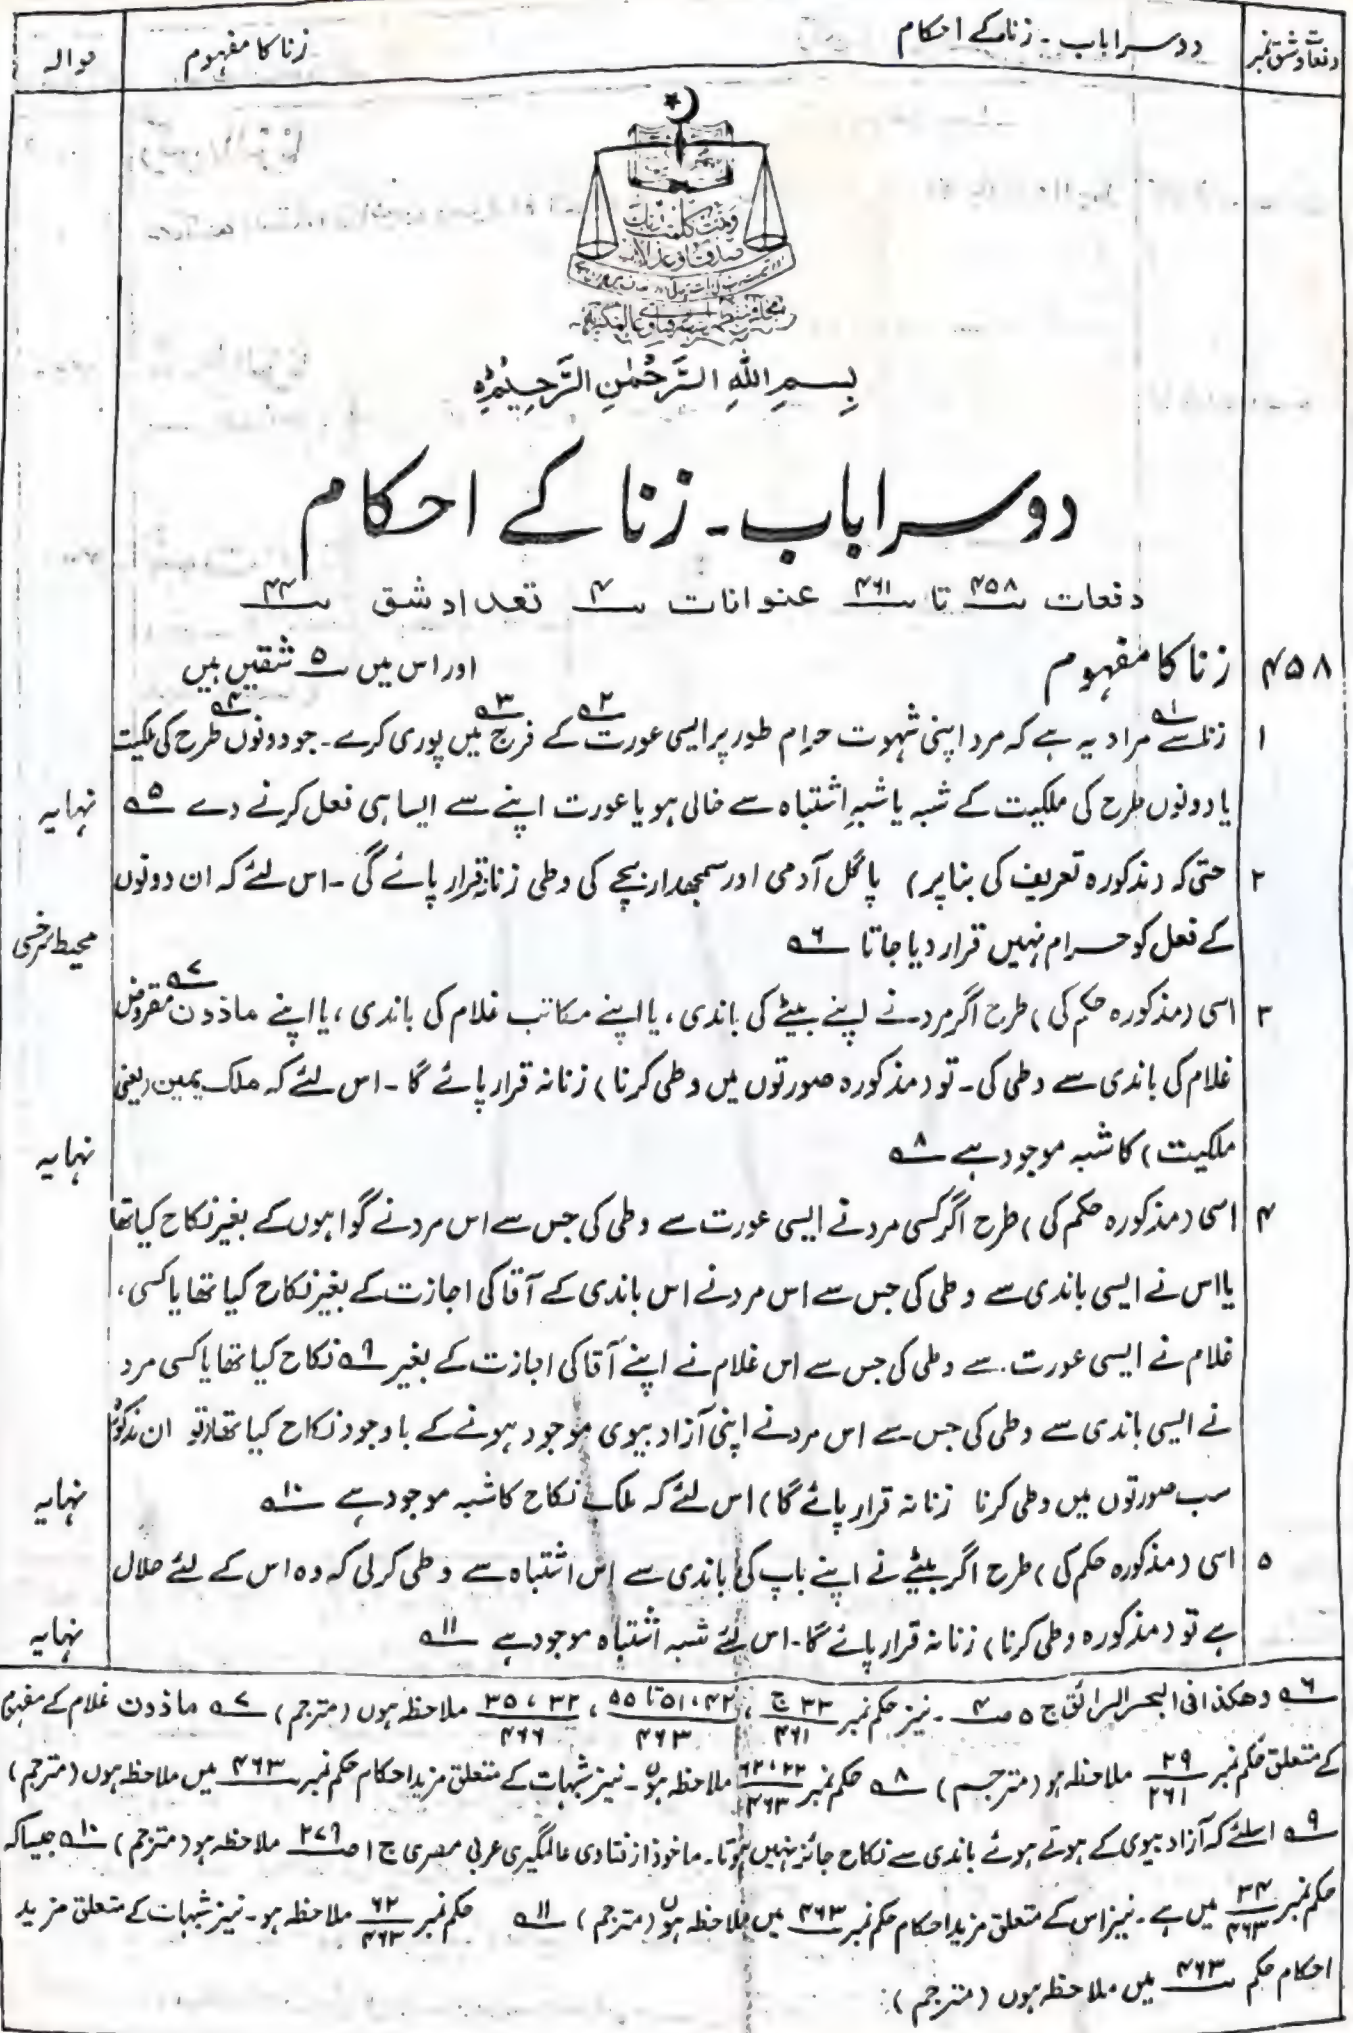 دفعات وشق نمبر
دوسرا باب ۔ زنا کے احکام
زنا کا مفہوم
حوالہ
وتمت کلمت ربک
صدقا وعدلا
بِسمِ اللهِ الرَّحمٰنِ الرَّحِيمِ
دوسرا باب ۔ زنا کے احکام
دفعات ۴۵۸ تا ۴۶۱ عنوانات ۴ تعداد شق ۴۴
۴۵۸ زنا کا مفہوم اور اس میں ۵ شقیں ہیں
۱ زنا ؁۱ سے مراد یہ ہے کہ مرد اپنی شہوت حرام طور پر ایسی عورت ؁۲ کے فرج ؁۳ میں پوری کرے ۔ جو دونوں ؁۴ طرح کی ملکیت
یا دونوں طرح کی ملکیت کے شبہ یا شبہِ اشتباہ سے خالی ہو یا عورت اپنے سے ایسا ہی فعل کرنے دے ؁۵ نہایہ
۲ حتی کہ (مذکورہ تعریف کی بنا پر) پاگل آدمی اور سمجھدار بچے کی وطی زنا نہ قرار پائے گی ۔ اس لئے کہ ان دونوں
کے فعل کو حرام نہیں قرار دیا جاتا ؁۶ محیط سرخسی
۳ اسی (مذکورہ حکم کی) طرح اگر مرد نے اپنے بیٹے کی باندی ، یا اپنے مکاتب غلام کی باندی ، یا اپنے ماذون ؁۷ مقروض
غلام کی باندی سے وطی کی ۔ تو (مذکورہ صورتوں میں وطی کرنا) زنا نہ قرار پائے گا ۔ اس لئے کہ ملک یمین (یعنی
ملکیت) کا شبہ موجود ہے ؁۸ نہایہ
۴ اسی (مذکورہ حکم کی) طرح اگر کسی مرد نے ایسی عورت سے وطی کی جس سے اس مرد نے گواہوں کے بغیر نکاح کیا تھا
یا اس نے ایسی باندی سے وطی کی جس سے اس مرد نے اس باندی کے آقا کی اجازت کے بغیر نکاح کیا تھا یا کسی ،
غلام نے ایسی عورت سے وطی کی جس سے اس غلام نے اپنے آقا کی اجازت کے بغیر ؁۹ نکاح کیا تھا یا کسی مرد
نے ایسی باندی سے وطی کی جس سے اس مرد نے اپنی آزاد بیوی موجود ہونے کے باوجود نکاح کیا تھا (تو ان مذکورہ
سب صورتوں میں وطی کرنا زنا نہ قرار پائے گا) اس لئے کہ ملک نکاح کا شبہ موجود ہے ؁۱۰ نہایہ
۵ اسی (مذکورہ حکم کی) طرح اگر بیٹے نے اپنے باپ کی باندی سے اس اشتباہ سے وطی کر لی کہ وہ اس کے لئے حلال
ہے تو (مذکورہ وطی کرنا) زنا نہ قرار پائے گا ۔ اس لئے شبہ اشتباہ موجود ہے ؁۱۱ نہایہ
؁۶ وھکذا فی البحر الرائق ج ۵ ص۴ ۔ نیز حکم نمبر ۳۳ ج/۴۶۱ ، ۴۲ ، ۵۱ تا ۵۵/۴۶۳ ، ۳۲ ، ۳۵/۴۶۶ ملاحظہ ہوں (مترجم) ؁۷ ماذون غلام کے مفہوم
کے متعلق حکم نمبر ۲۹/۲۶۱ ملاحظہ ہو (مترجم) ؁۸ حکم نمبر ۲۲ ، ۶۲/۴۶۳ ملاحظہ ہوں ۔ نیز شبہات کے متعلق مزید احکام حکم نمبر ۴۶۳ میں ملاحظہ ہوں (مترجم)
؁۹ اسلئے کہ آزاد بیوی کے ہوتے ہوئے باندی سے نکاح جائز نہیں ہوتا ۔ ماخوذ از فتاوی عالمگیری عربی مصری ج ۱ ص۲۷۹ ملاحظہ ہو (مترجم) ؁۱۰ جیسا کہ
حکم نمبر ۳۴/۴۶۳ میں ہے ۔ نیز اس کے متعلق مزید احکام حکم نمبر ۴۶۳ میں ملاحظہ ہوں (مترجم) ؁۱۱ حکم نمبر ۶۲/۴۶۳ ملاحظہ ہو ۔ نیز شبہات کے متعلق مزید
احکام حکم ۴۶۳ میں ملاحظہ ہوں (مترجم) :